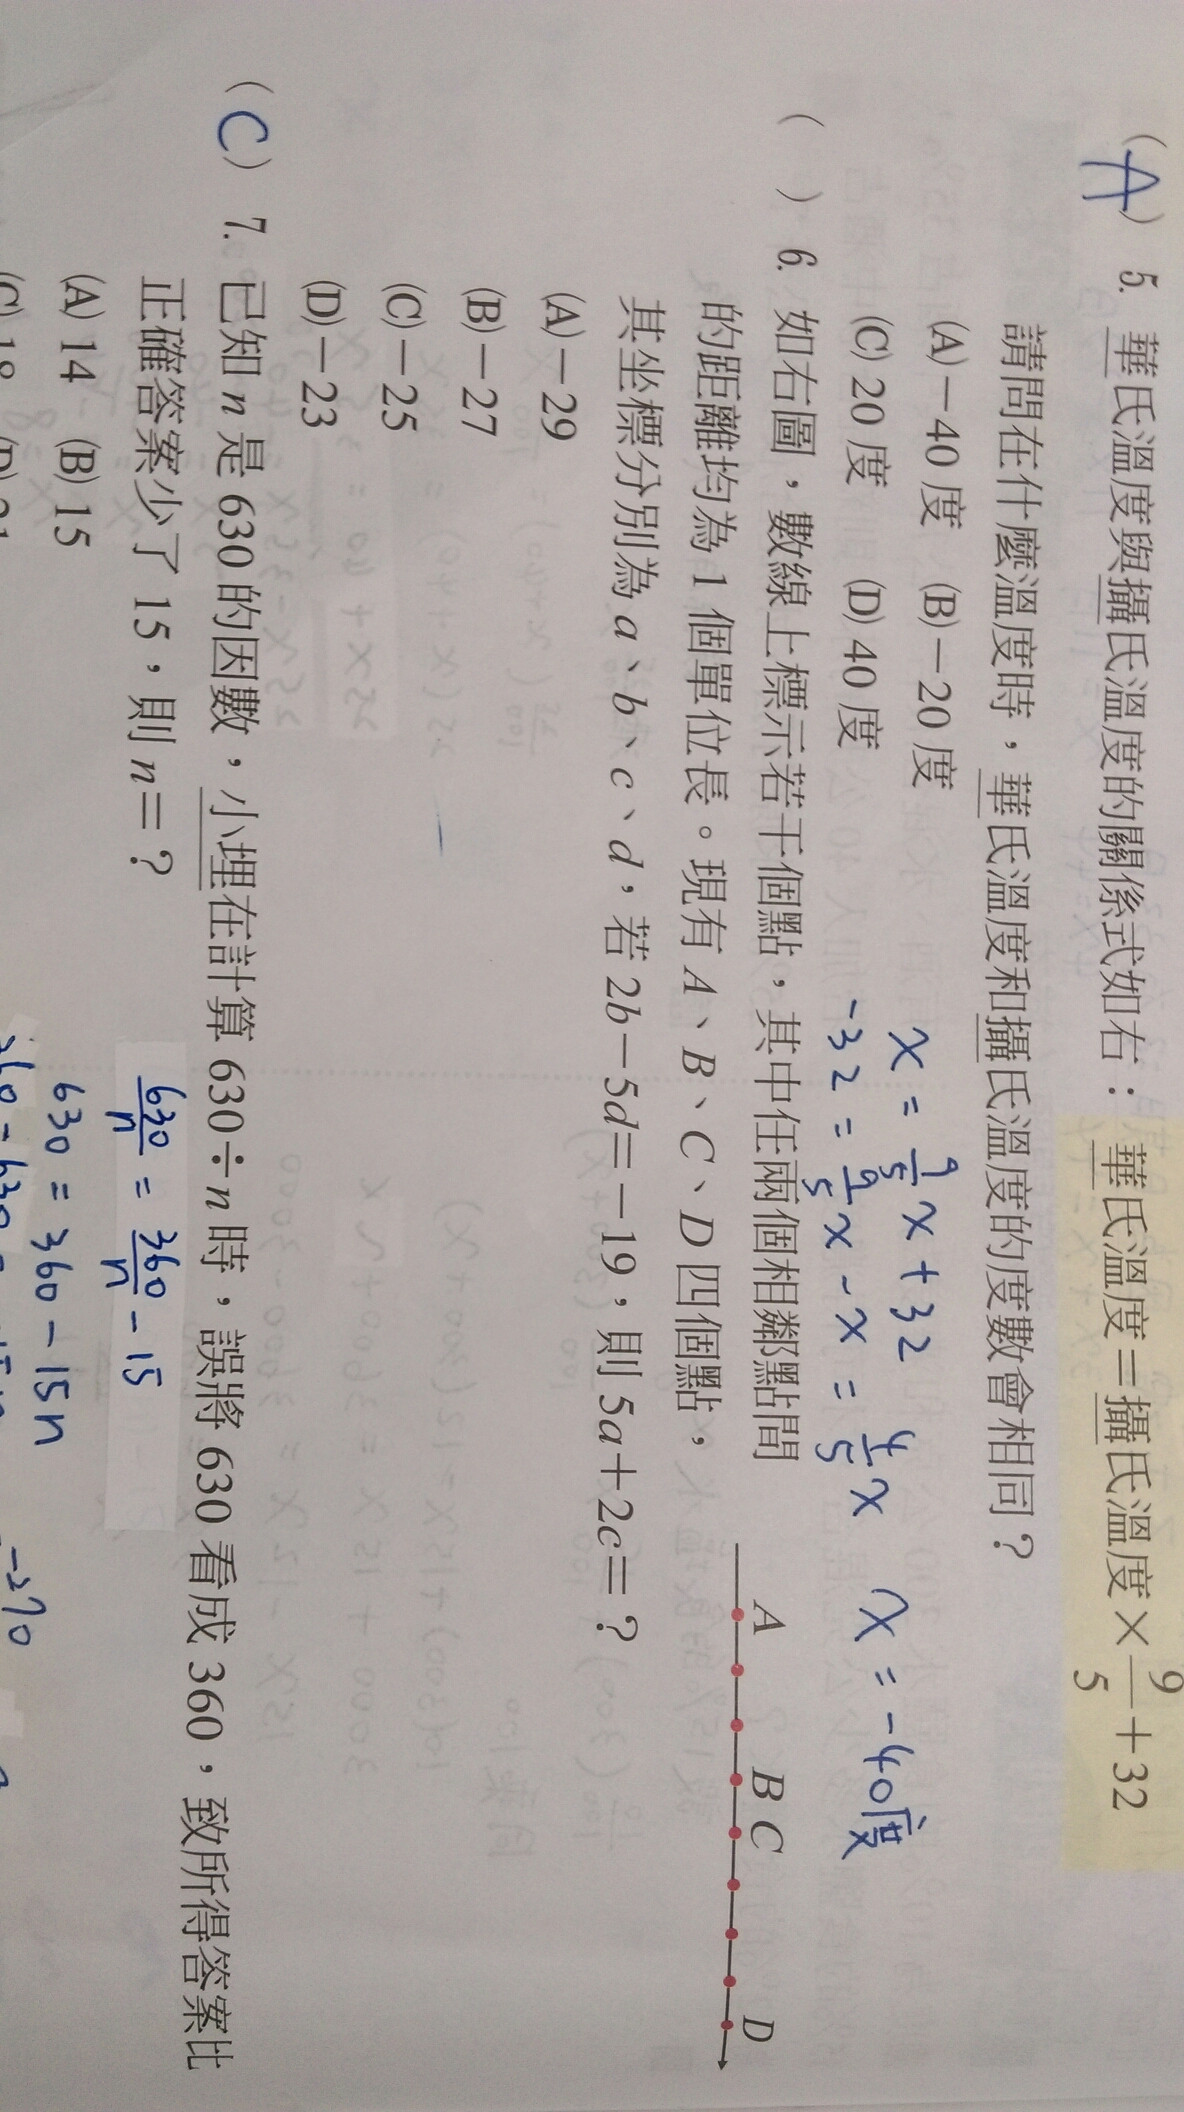 (A) 5. 華氏溫度與攝氏溫度的關係式如右：華氏溫度＝攝氏溫度×9/5＋32
請問在什麼溫度時，華氏溫度和攝氏溫度的度數會相同？
(A)－40度 (B)－20度
(C) 20度 (D) 40度
x = 9/5 x + 32
-32 = 9/5 x - x = 4/5 x
x = -40度
( ) 6. 如右圖，數線上標示若干個點，其中任兩個相鄰點間
的距離均為1個單位長。現有A、B、C、D四個點，
其坐標分別為a、b、c、d，若2b－5d＝－19，則5a＋2c＝？
A B C D
(A)－29
(B)－27
(C)－25
(D)－23
(C) 7. 已知n是630的因數，小埋在計算630÷n時，誤將630看成360，致所得答案比
正確答案少了15，則n＝？
(A) 14 (B) 15
(C) 18
630/n = 360/n - 15
630 = 360 - 15n
-270